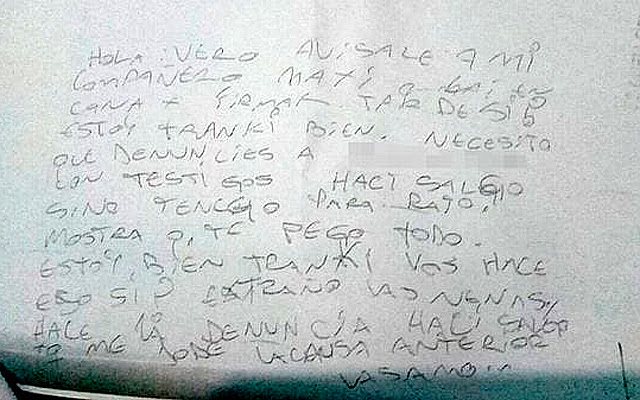 HOLA VERO AVISALE A MI
COMPAÑERO MAXI Q CAI EN
CANA X FIRMAR TARDE SI
ESTOY TRANKI BIEN. NECESITO
QUE DENUNCIES A
CON TESTIGOS HACI SALGO
SINO TENGO PARA RATO,
MOSTRA Q. TE PEGO TODO.
ESTOY BIEN TRANKI VOS HACE
ESO SI? EXTRAÑO LAS NENAS,
HACE LA DENUNCIA HACI SALGO
ME LA CAUSA ANTERIOR